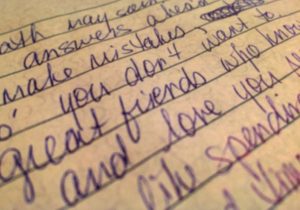 ath may
answers ahead
make mistakes
you don't want to
great friends who
and love you
like spending